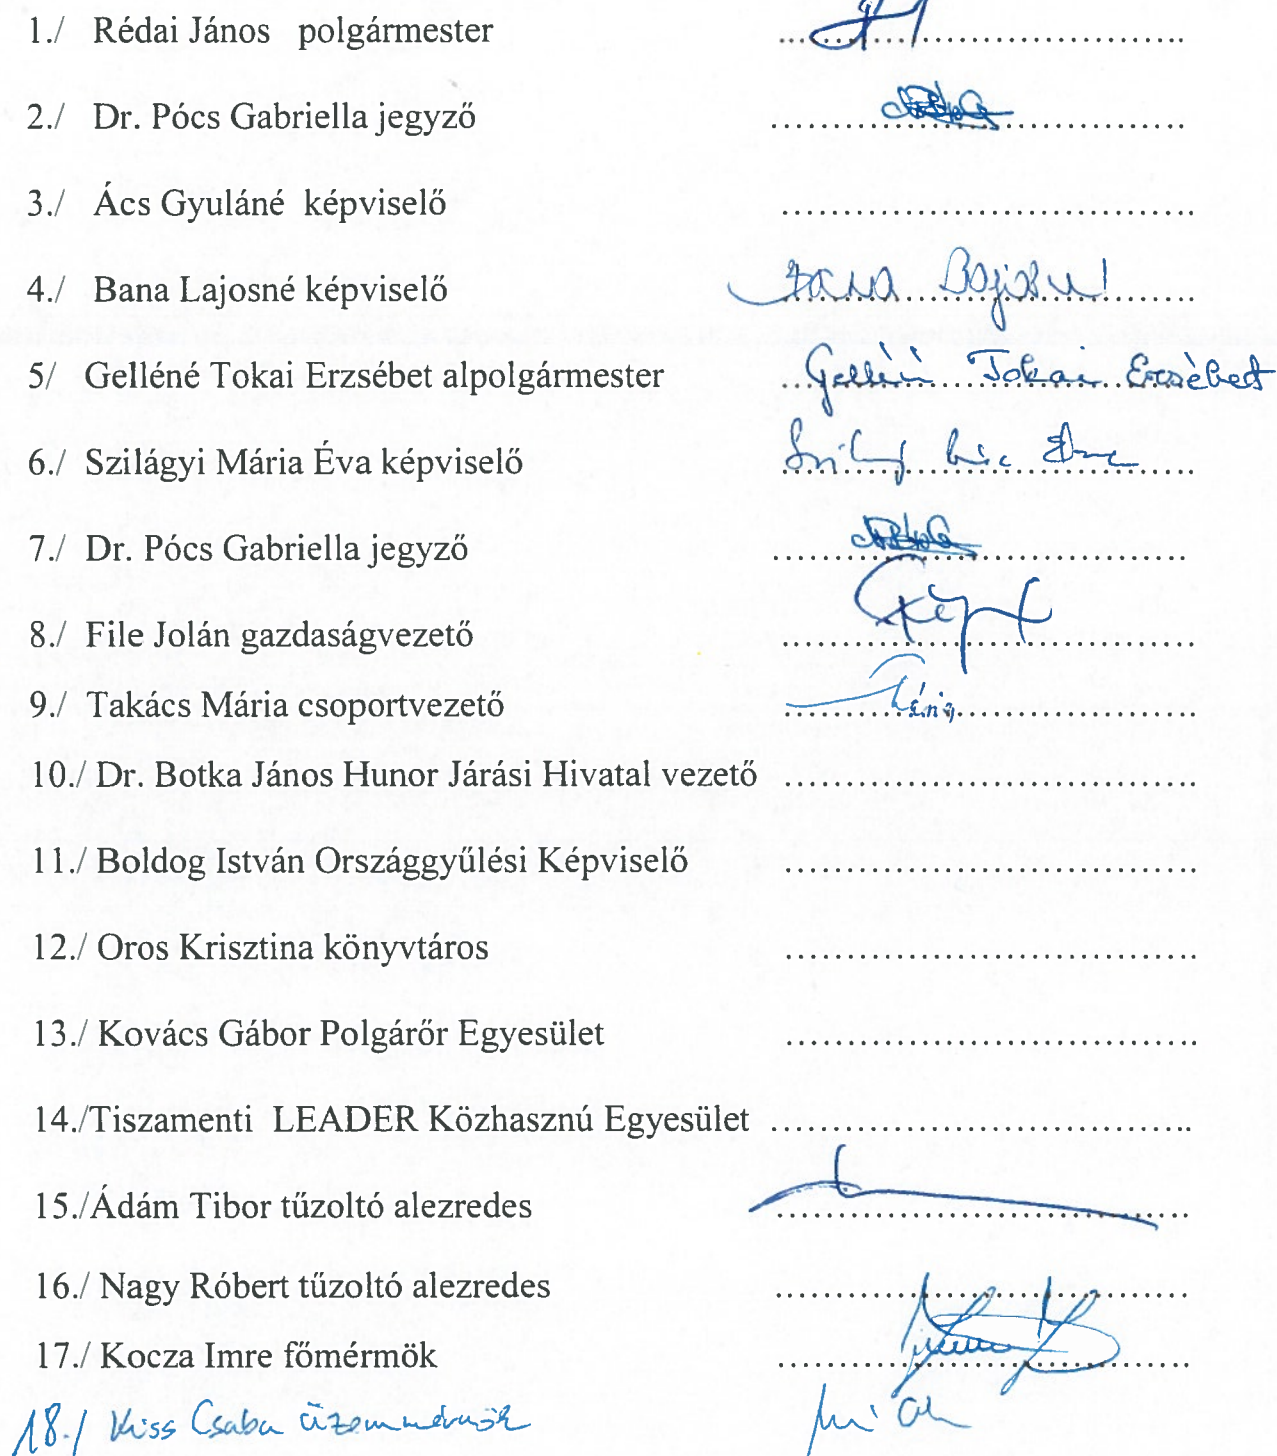 1./ Rédai János polgármester ..................................
2./ Dr. Pócs Gabriella jegyző ..................................
3./ Ács Gyuláné képviselő ..................................
4./ Bana Lajosné képviselő Bana Lajosné
5/ Gelléné Tokai Erzsébet alpolgármester Gelléné Tokai Erzsébet
6./ Szilágyi Mária Éva képviselő ..................................
7./ Dr. Pócs Gabriella jegyző ..................................
8./ File Jolán gazdaságvezető ..................................
9./ Takács Mária csoportvezető ..................................
10./ Dr. Botka János Hunor Járási Hivatal vezető ..................................
11./ Boldog István Országgyűlési Képviselő ..................................
12./ Oros Krisztina könyvtáros ..................................
13./ Kovács Gábor Polgárőr Egyesület ..................................
14./Tiszamenti LEADER Közhasznú Egyesület ..................................
15./Ádám Tibor tűzoltó alezredes ..................................
16./ Nagy Róbert tűzoltó alezredes ..................................
17./ Kocza Imre főmérmök ..................................
18./ Kiss Csaba üzemmérnök